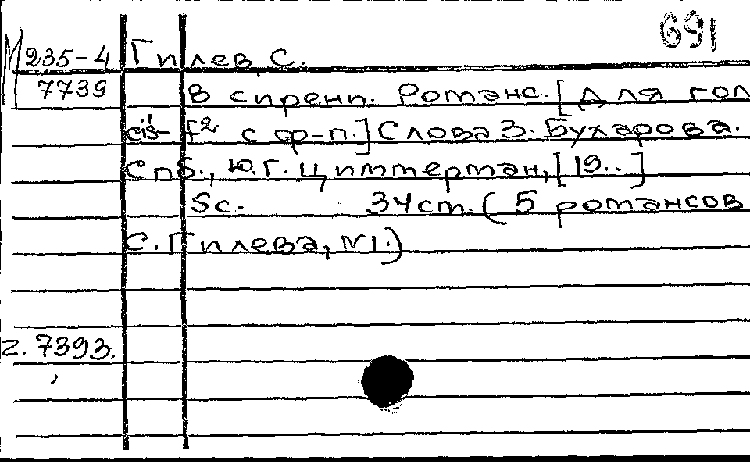 691
М 235-4 Гилев, С.
7739 В сирени. Романс. [Для гол
cis¹- f² с ф-п.] Слова З. Бухарова.
Спб., Ю.Г. Циммерман, [19..]
Sc. 34 cm. (5 романсов
С. Гилева, N1.)
г. 7393.